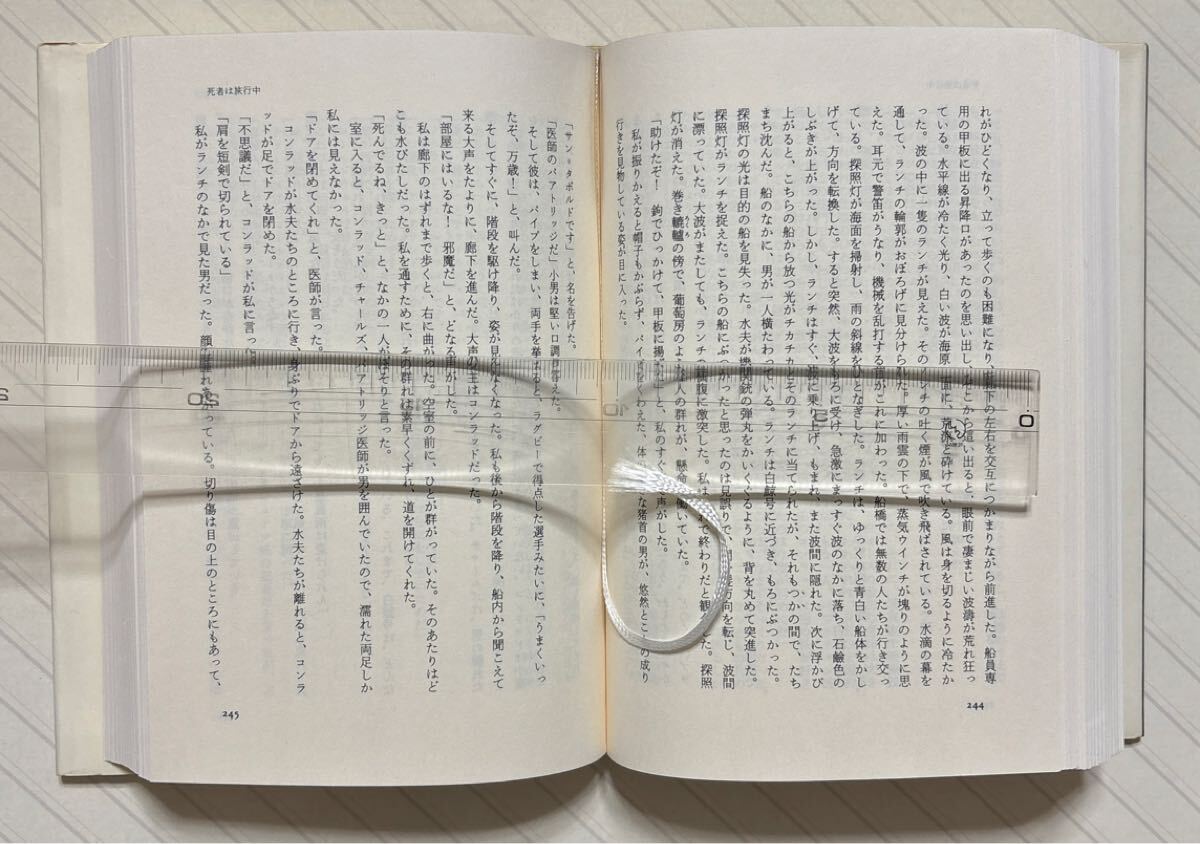 れがひどくなり、立って歩くのも困難になり、廊下の左右を交互につかまりながら前進した。船員専
用の甲板に出る昇降口があったのを思い出し、そこから這い出ると、眼前で凄まじい波濤が荒れ狂っ
ている。水平線が冷たく光り、白い波が海原一面に、荒涼と砕けている。風は身を切るように冷たか
った。波の中に一隻のランチが見えた。そのランチの吐く煙が風で吹き飛ばされている。水滴の幕を
通して、ランチの輪郭がおぼろげに見分けられた。厚い雨雲の下で、蒸気ウインチが塊りのように思
えた。耳元で警笛がうなり、機械を乱打する音がこれに加わった。船橋では無数の人たちが行き交っ
ている。探照灯が海面を掃射し、雨の斜線をひとなぎした。ランチは、ゆっくりと青白い船体をかし
げて、方向を転換した。すると突然、大波をもろに受け、急激にまっすぐ波のなかに落ち、石鹼色の
しぶきが上がった。しかし、ランチはすぐ、波に乗り上げ、もまれ、また波間に隠れた。次に浮かび
上がると、こちらの船から放つ光がチカチカとそのランチに当てられたが、それもつかの間で、たち
まち沈んだ。船のなかに、男が一人横たわっている。ランチは白鯨号に近づき、もろにぶつかった。
探照灯の光は目的の船を見失った。水夫が機関銃の弾丸をかいくぐるように、背を丸めて突進した。
探照灯がランチを捉えた。こちらの船にぶつかったと思ったのは見誤りで、方向を転じ、波間
に漂っていた。大波がまたしても、ランチの横腹に激突した。私はこれで終わりだと観した。探照
灯が消えた。巻き轆轤の傍で、葡萄房のような人の群れが、懸命に働いていた。
「助けたぞ! 鉤でひっかけて、甲板に揚げた」と、私のすぐ声がした。
私が振りかえると帽子もかぶらず、パイプをくわえた、体な猪首の男が、悠然とこの成り
行きを見物している姿が目に入った。
244
死者は旅行中
「サン=タボルドです」と、名を告げた。
「医師のパアトリッジだ」小男は堅い口調で答えた。
そして彼は、パイプをしまい、両手を挙げると、ラグビーで得点した選手みたいに、「うまくいっ
たぞ、万歳!」と、叫んだ。
そしてすぐに、階段を駆け降り、姿が見えなくなった。私も後から階段を降り、船内から聞こえて
来る大声をたよりに、廊下を進んだ。大声の主はコンラッドだった。
「部屋にはいるな! 邪魔だ」と、どなる声がした。
私は廊下のはずれまで歩くと、右に曲がった。空室の前に、ひとが群がっていた。そのあたりはど
こも水びたしだった。私を通すために、その群れは素早くくずれ、道を開けてくれた。
「死んでるね、きっと」と、なかの一人がぼそりと言った。
室に入ると、コンラッド、チャールズ、パアトリッジ医師が男を囲んでいたので、濡れた両足しか
私には見えなかった。
「ドアを閉めてくれ」と、医師が言った。
コンラッドが水夫たちのところに行き、身ぶりでドアから遠ざけた。水夫たちが離れると、コンラ
ッドが足でドアを閉めた。
「不思議だ」と、コンラッドが私に言った。
「肩を短剣で切られている」
私がランチのなかで見た男だった。顔が腫れあがっている。切り傷は目の上のところにもあって、
245
0 5 10 20